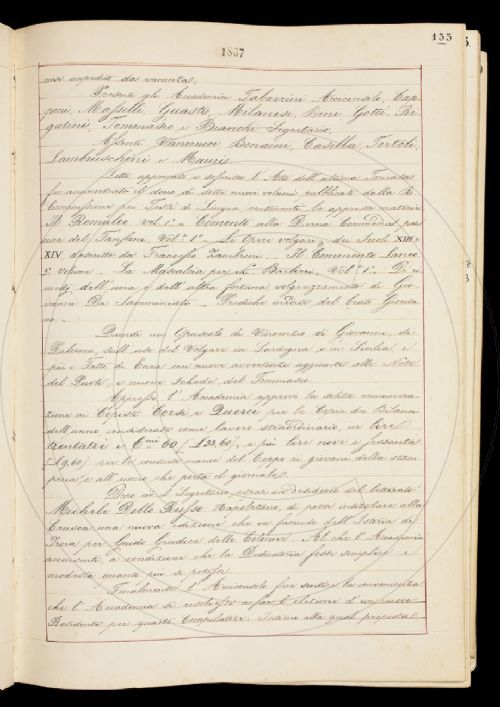 133
1867
ma impedito da vacanza.
Presenti gli Accademici Tabarrini Arciconsolo, Cap-
poni, Masselli, Guasti, Milanesi, Dini, Gotti, Ri-
gutini, Tommaseo e Bianchi Segretario.
Assenti Vannucci Bonaini, Casella, Tortoli,
Lambruschini e Mauri.
Letto approvato e soscritto l'Atto dell'ultima Tornata
fu annunziato il dono di sette nuovi volumi pubblicati dalla R.
Commissione pei Testi di Lingua, contenenti le appresso materie
Il Romuleo vol. 1.° Comento alla Divina Commedia per
cura del Fanfani Vol. 1.° Le Opere volgari dei Secoli XIII e
XIV descritte da Francesco Zambrini. Il Commento
La Mascalcia per L. Barbieri, Vol. 1.° Ri-
medj dell'una e dell'altra fortuna volgarizzamento di Gio-
vanni Da Saminiato. Prediche inedite del Beato Giorda-
no.
Donati un Opuscolo di Vincenzio di Giovanni, di
Palermo, sull'uso del Volgare in Sardegna e in Sicilia, e
più Fatti di Enea con nuove avvertenze aggiunte alle Note
del Puoti, e nuove schede del Tommaseo.
Appresso l'Accademia approvò la solita remunera-
zione ai Copisti Corsi e Querci per le Copie dei Bilanci
dell'anno, considerate come lavoro straordinario, in lire
trentatrè e C.mi 60 (£ 33,60), e più lire nove e sessanta
(£ 9,60) per le consuete mance del Ceppo ai giovani della stam-
peria e all'uomo che porta il giornale.
Dopo ciò il Segretario espose un desiderio del letterato
Michele Dello Russo Napoletano, di poter intitolare alla
Crusca una nuova edizione che va facendo dell'Istoria di
Troia per Guido Giudice delle Colonne. Al che l'Accademia
acconsentì, a condizione che la Dedicatoria fosse semplice e
modesta quanto più si potesse.
Finalmente l'Arciconsolo fece sentire la convenienza
che l'Accademia si risolvesse a far l'elezione d'un nuovo
Residente per quarto Compilatore. Intorno alla qual proposta